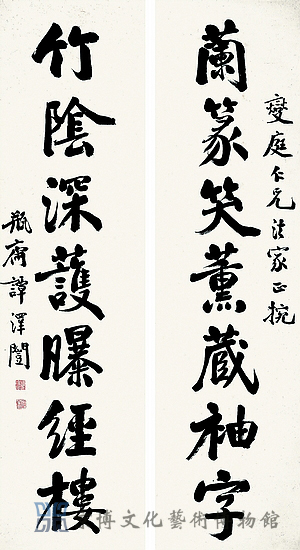 燮庭仁兄法家正捥
蘭篆笑薰藏袖字
竹陰深護曝經樓
瓶齋譚澤闓
博文化藝術博物館